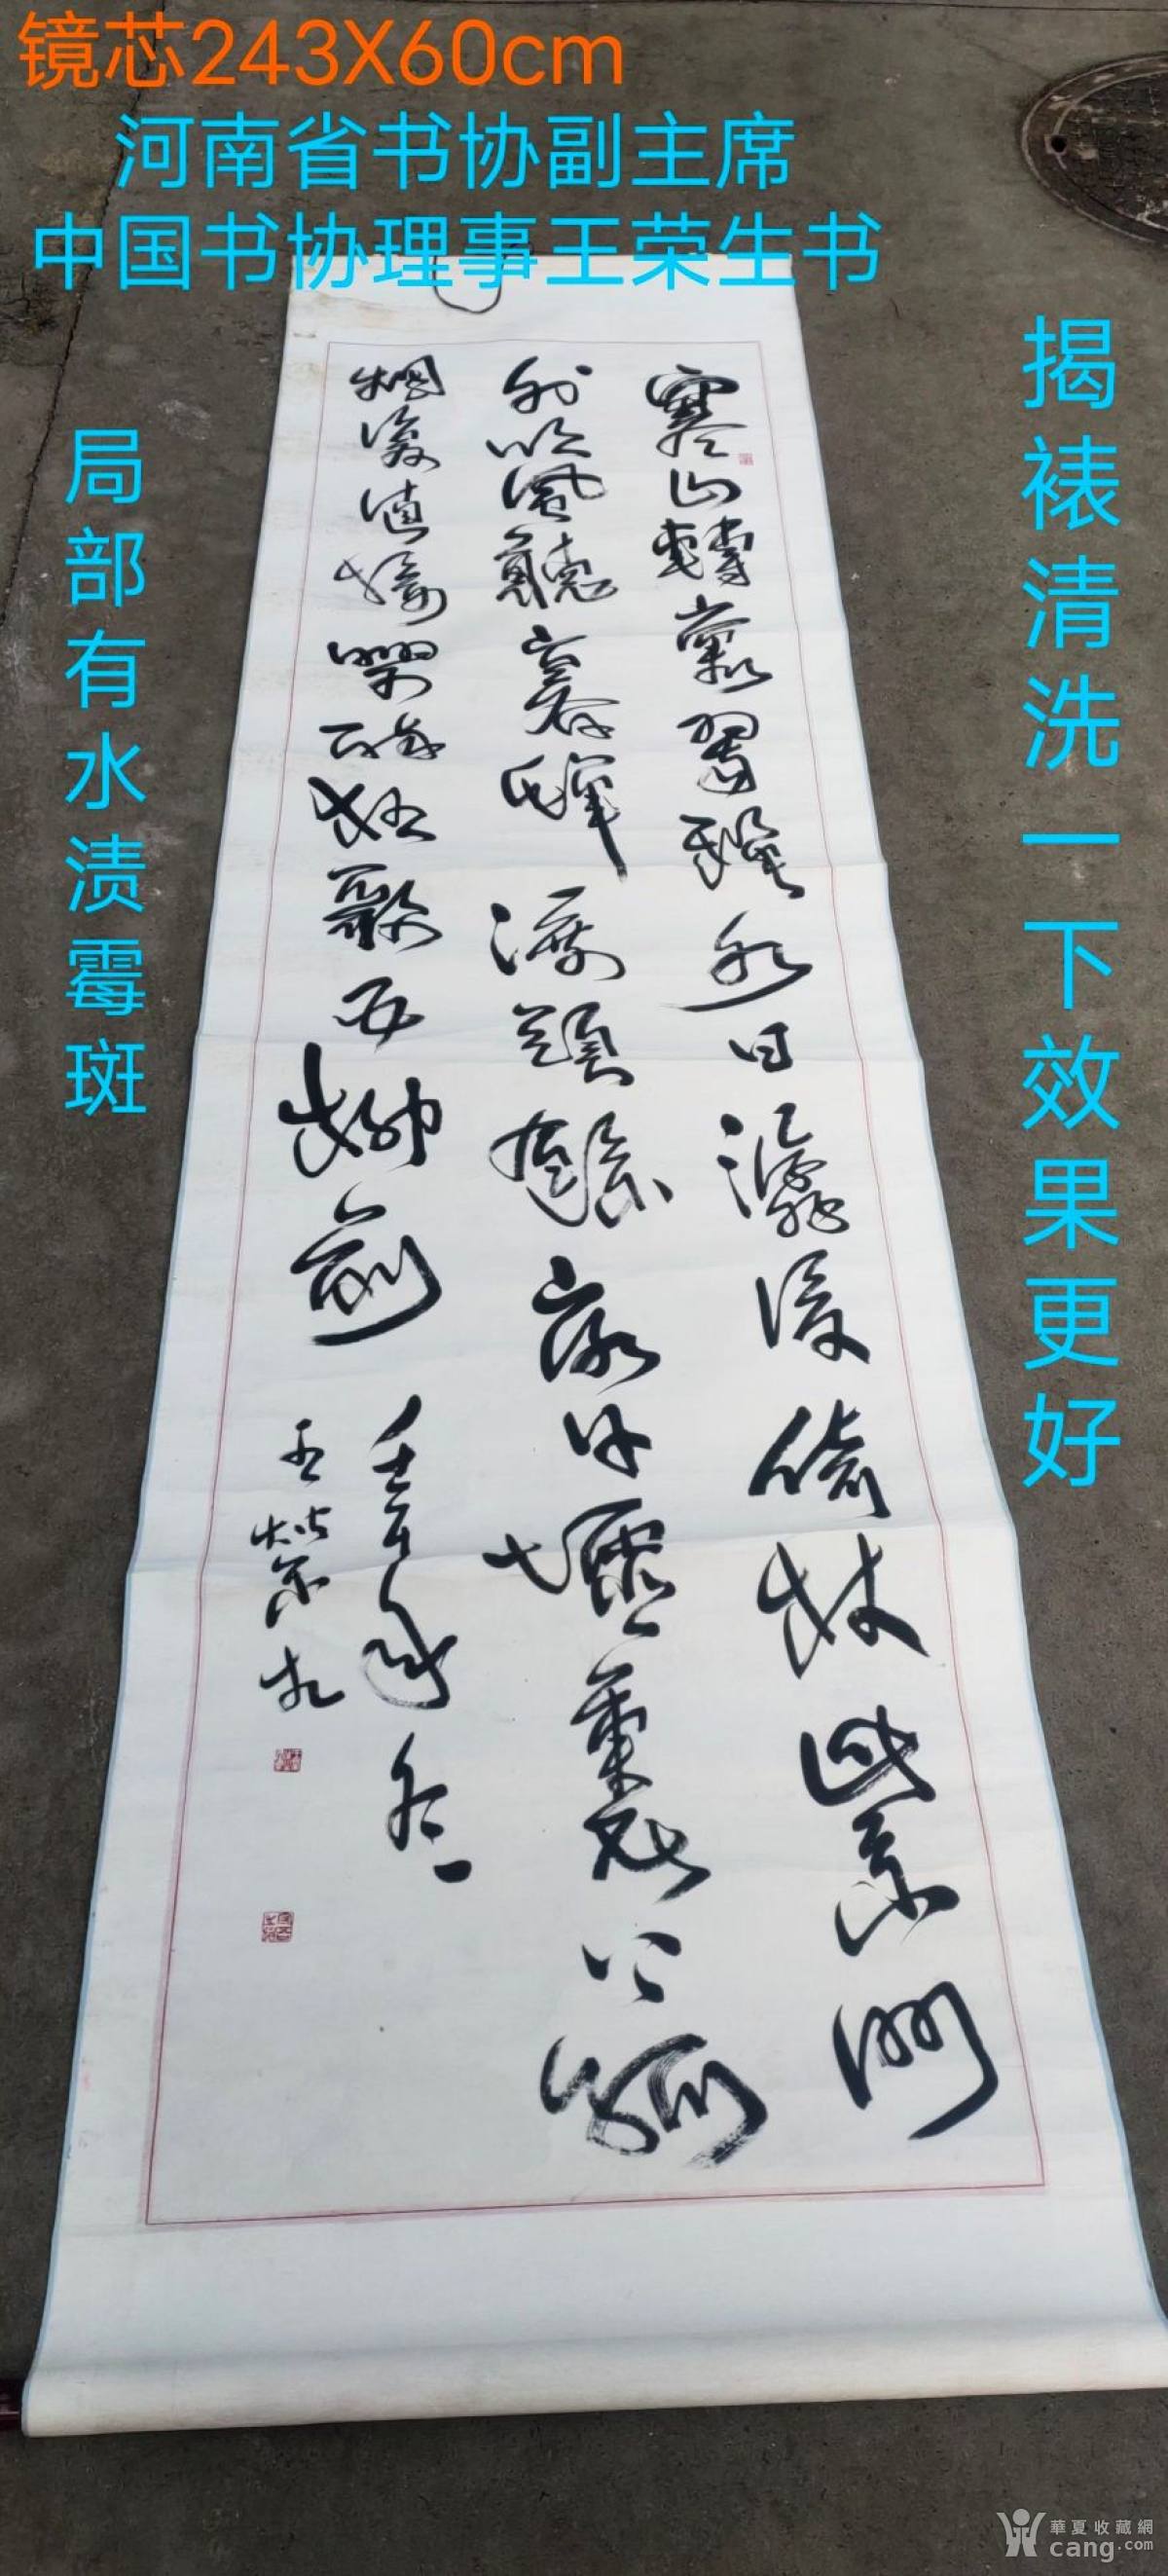 镜芯243X60cm
河南省书协副主席
中国书协理事王荣生书
揭裱清洗一下效果更好
局部有水渍霉斑
寒山轉蒼翠秋水日潺湲倚杖柴門
外臨風聽暮蟬渡頭餘落日墟里上孤
烟復值接輿醉狂歌五柳前
壬午年冬
王榮生
華夏收藏網
cang.com